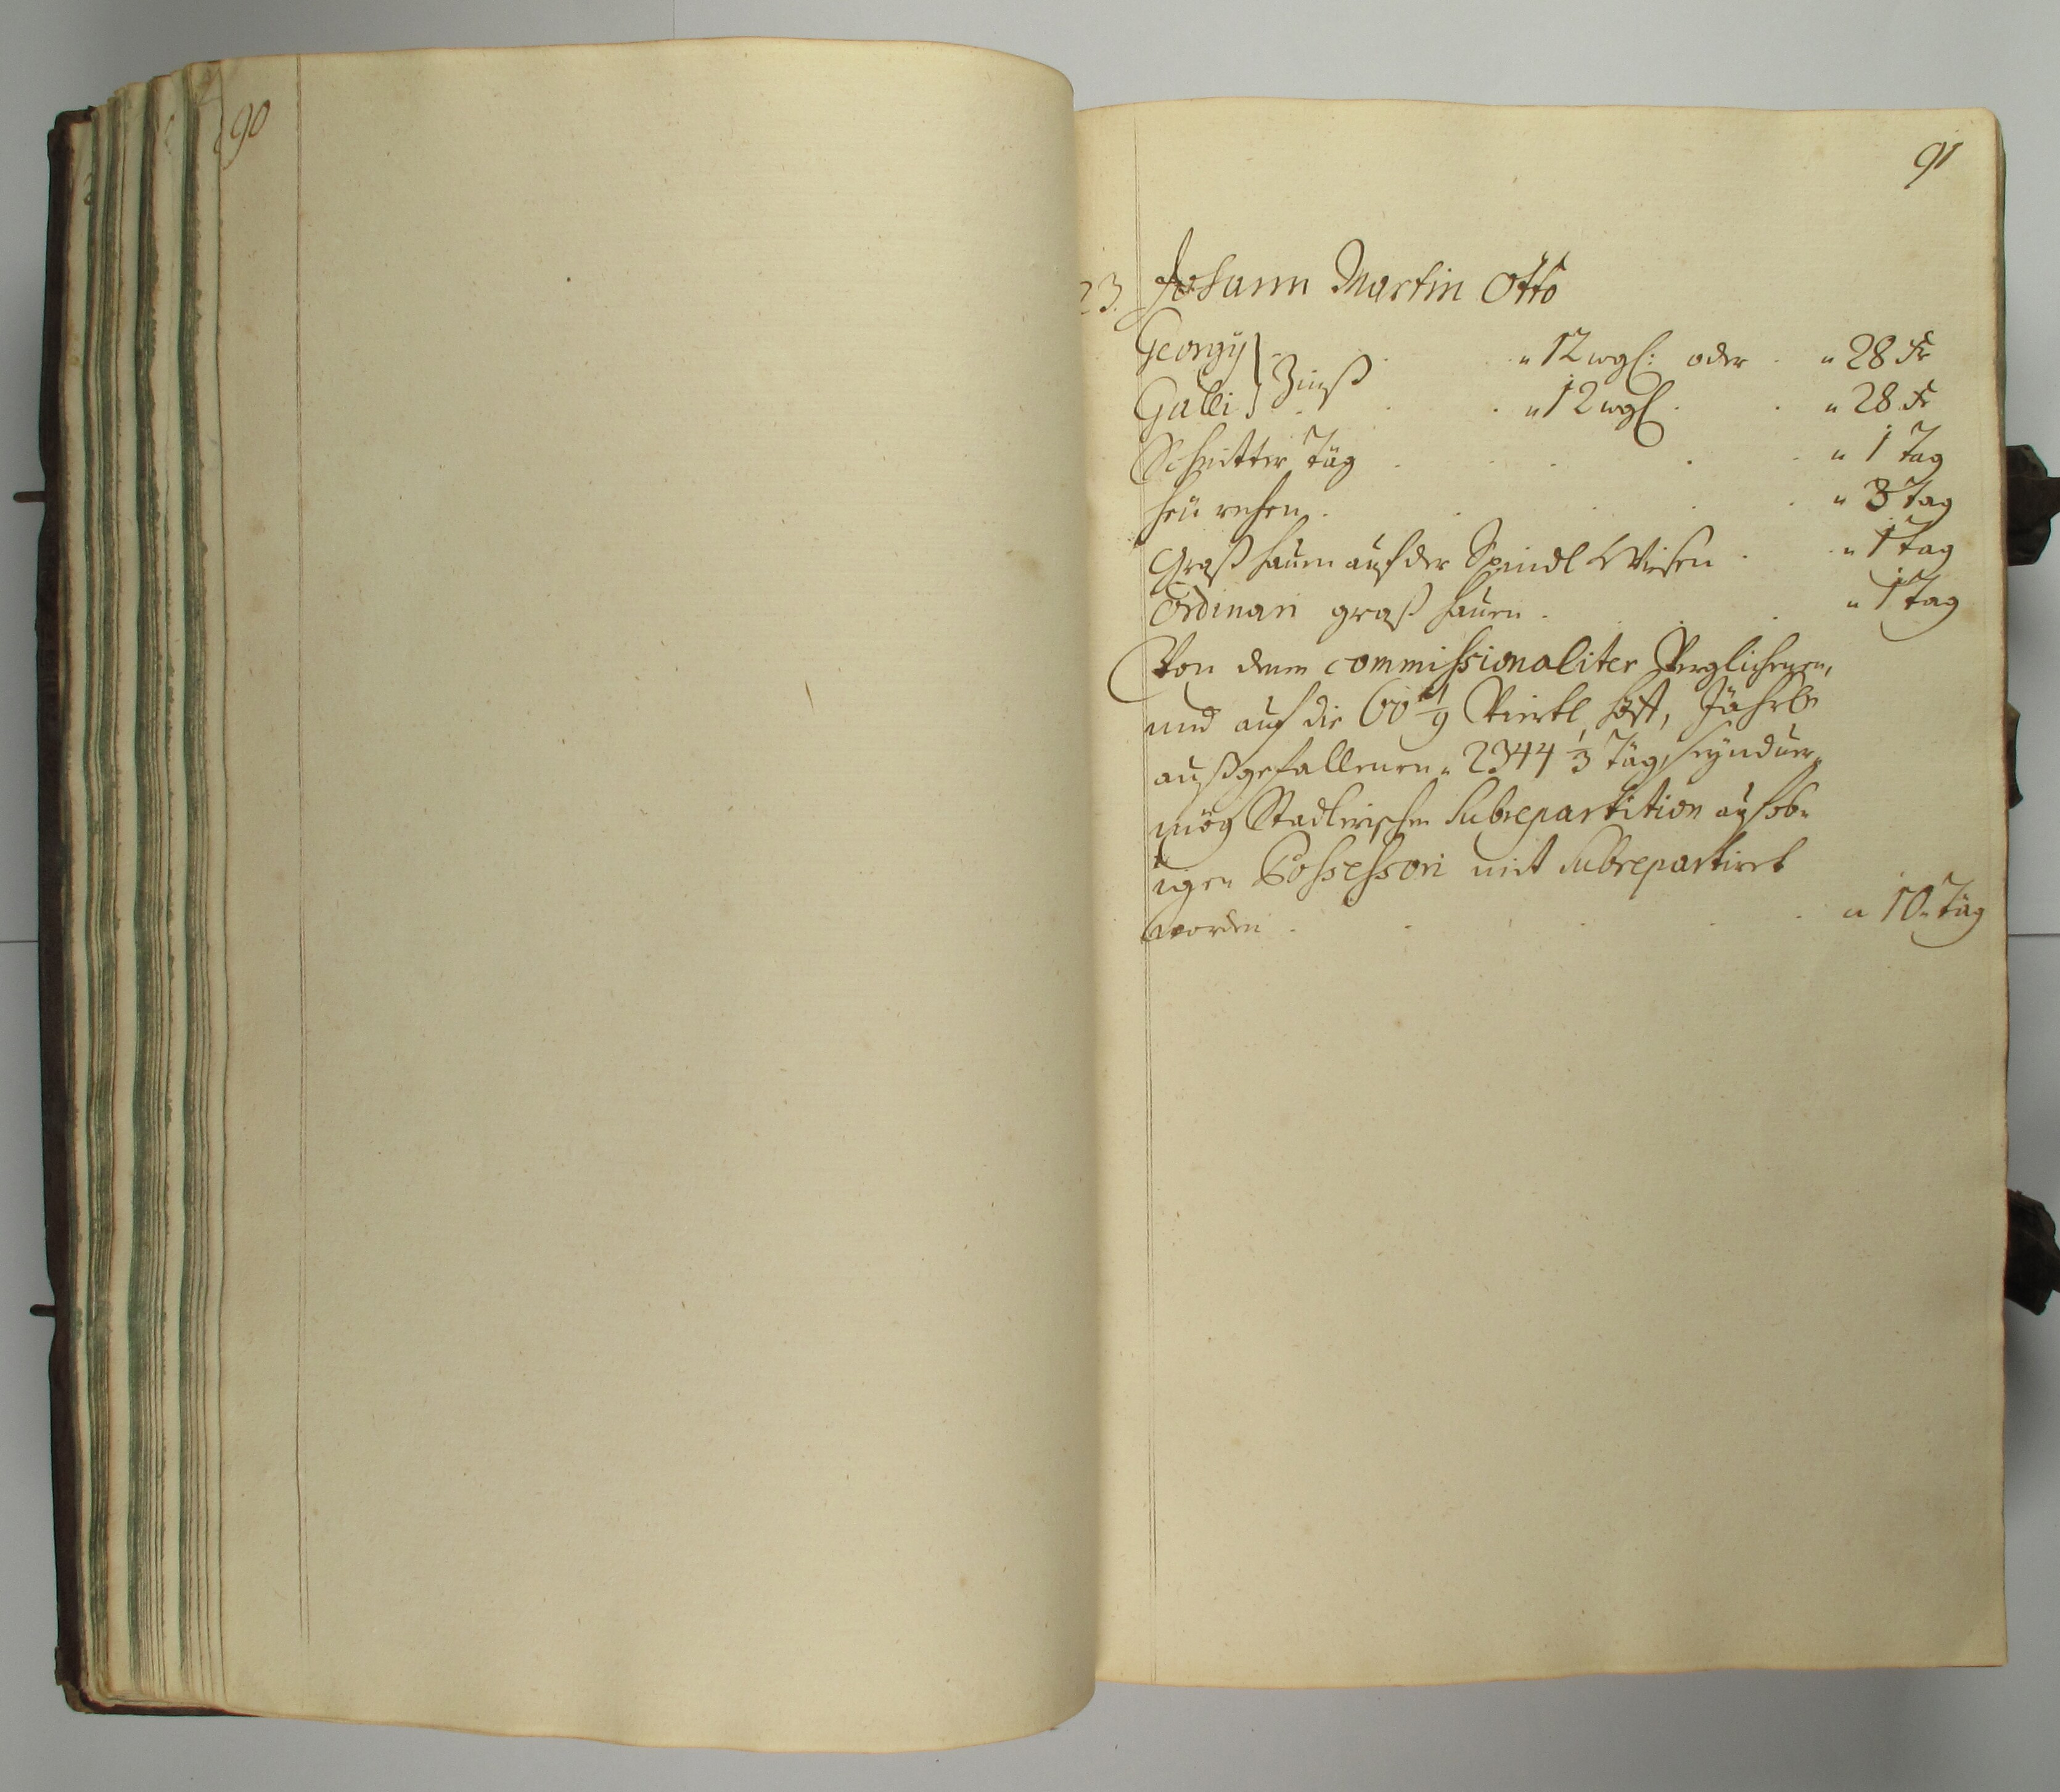 90
91
23. Johann Martin Otto
Georgÿ } Zinß " 12 wgl: oder " 28 Kr
Galli " 12 wgl. " 28 Kr
Schnitter Täg " 1 Tag
Heü rehen " 3 Tag
Graß hauen auf der Spindl Wiesen " 1 Tag
Ordinari graß hauen " 1 Tag
Von denen commissionaliter Verglichenen,
und auf die 60 1/9 Viertl Höff, Jährl.
außgefallenen " 2344 1/3 Täg, seynd ver„
mög Stadlerischen Subrepartition auf ob„
igen Possessori mit Subrepartiret
worden " 10 „ Täg